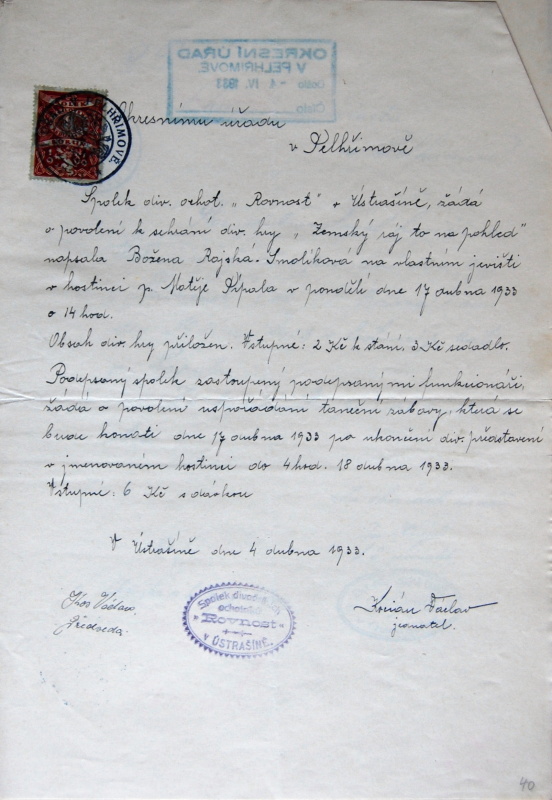 OKRESNÍ ÚŘAD
V PELHŘIMOVĚ.
Došlo - 4. IV. 1933
Číslo
Okresnímu úřadu
v Pelhřimově
Spolek div. ochot. „Rovnost" v Ústrašíně, žádá
o povolení k sehrání div. hry „Zemský ráj to na pohled"
napsala Božena Rajská-Smolíkova na vlastním jevišti
v hostinci p. Matěje Křípala v pondělí dne 17 dubna 1933
o 14 hod.
Obsah div. hry přiložen. Vstupné: 2 Kč k stání, 3 Kč sedadlo.
Podepsaný spolek zastoupený podepsanými funkcionáři,
žádá o povolení uspořádání taneční zábavy, která se
bude konati dne 17 dubna 1933 po ukončení div. představení
v jmenovaném hostinci do 4 hod. 18 dubna 1933.
Vstupné: 6 Kč s dávkou
V Ústrašíně dne 4 dubna 1933.
Václav
předseda.
Spolek divadelních
ochotníků
"Rovnost"
v ÚSTRAŠÍNĚ.
Václav
jednatel.
40